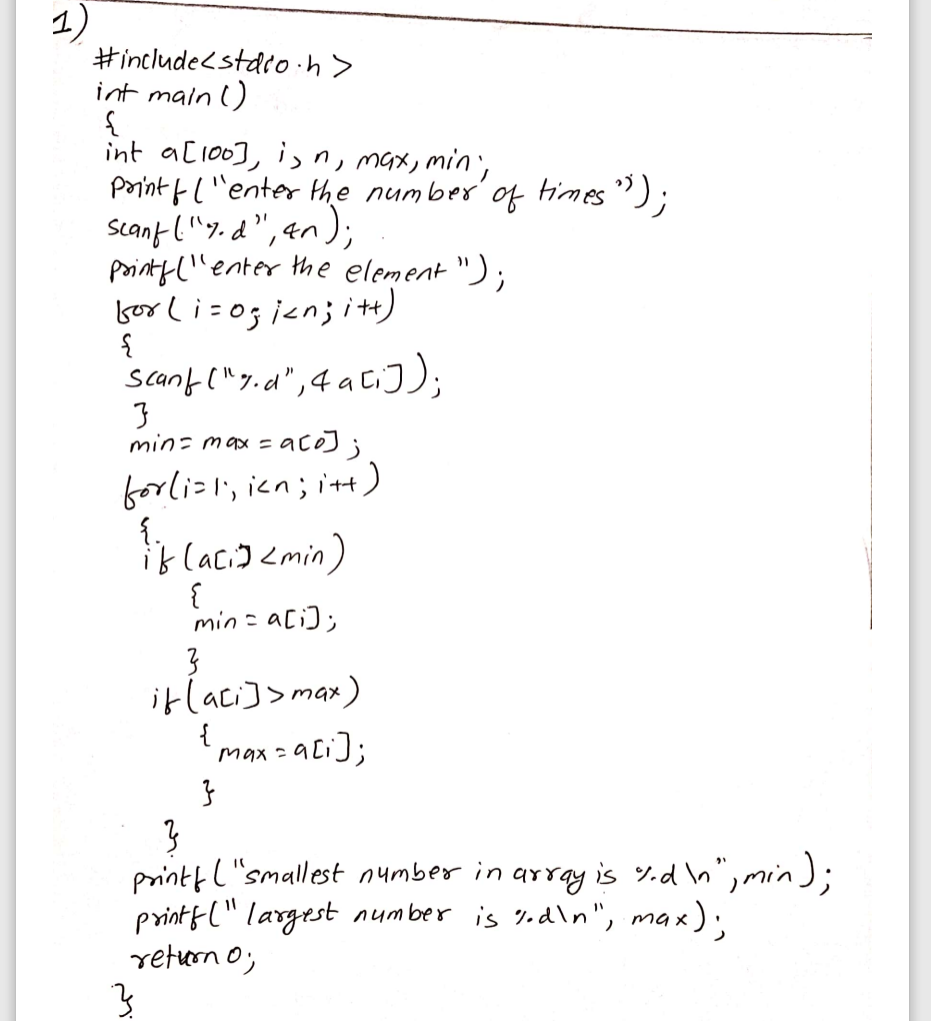 1)
#include<stdio.h>
int main()
{
int a[100], i, n, max, min;
printf("enter the number of times");
scanf("%d", &n);
printf("enter the element");
for(i=0; i<n; i++)
{
scanf("%d", &a[i]);
}
min= max = a[0];
for(i=1; i<n; i++)
{
if(a[i] <min)
{
min = a[i];
}
if(a[i]>max)
{
max = a[i];
}
}
printf("smallest number in array is %d\n", min);
printf("largest number is %d\n", max);
return 0;
}